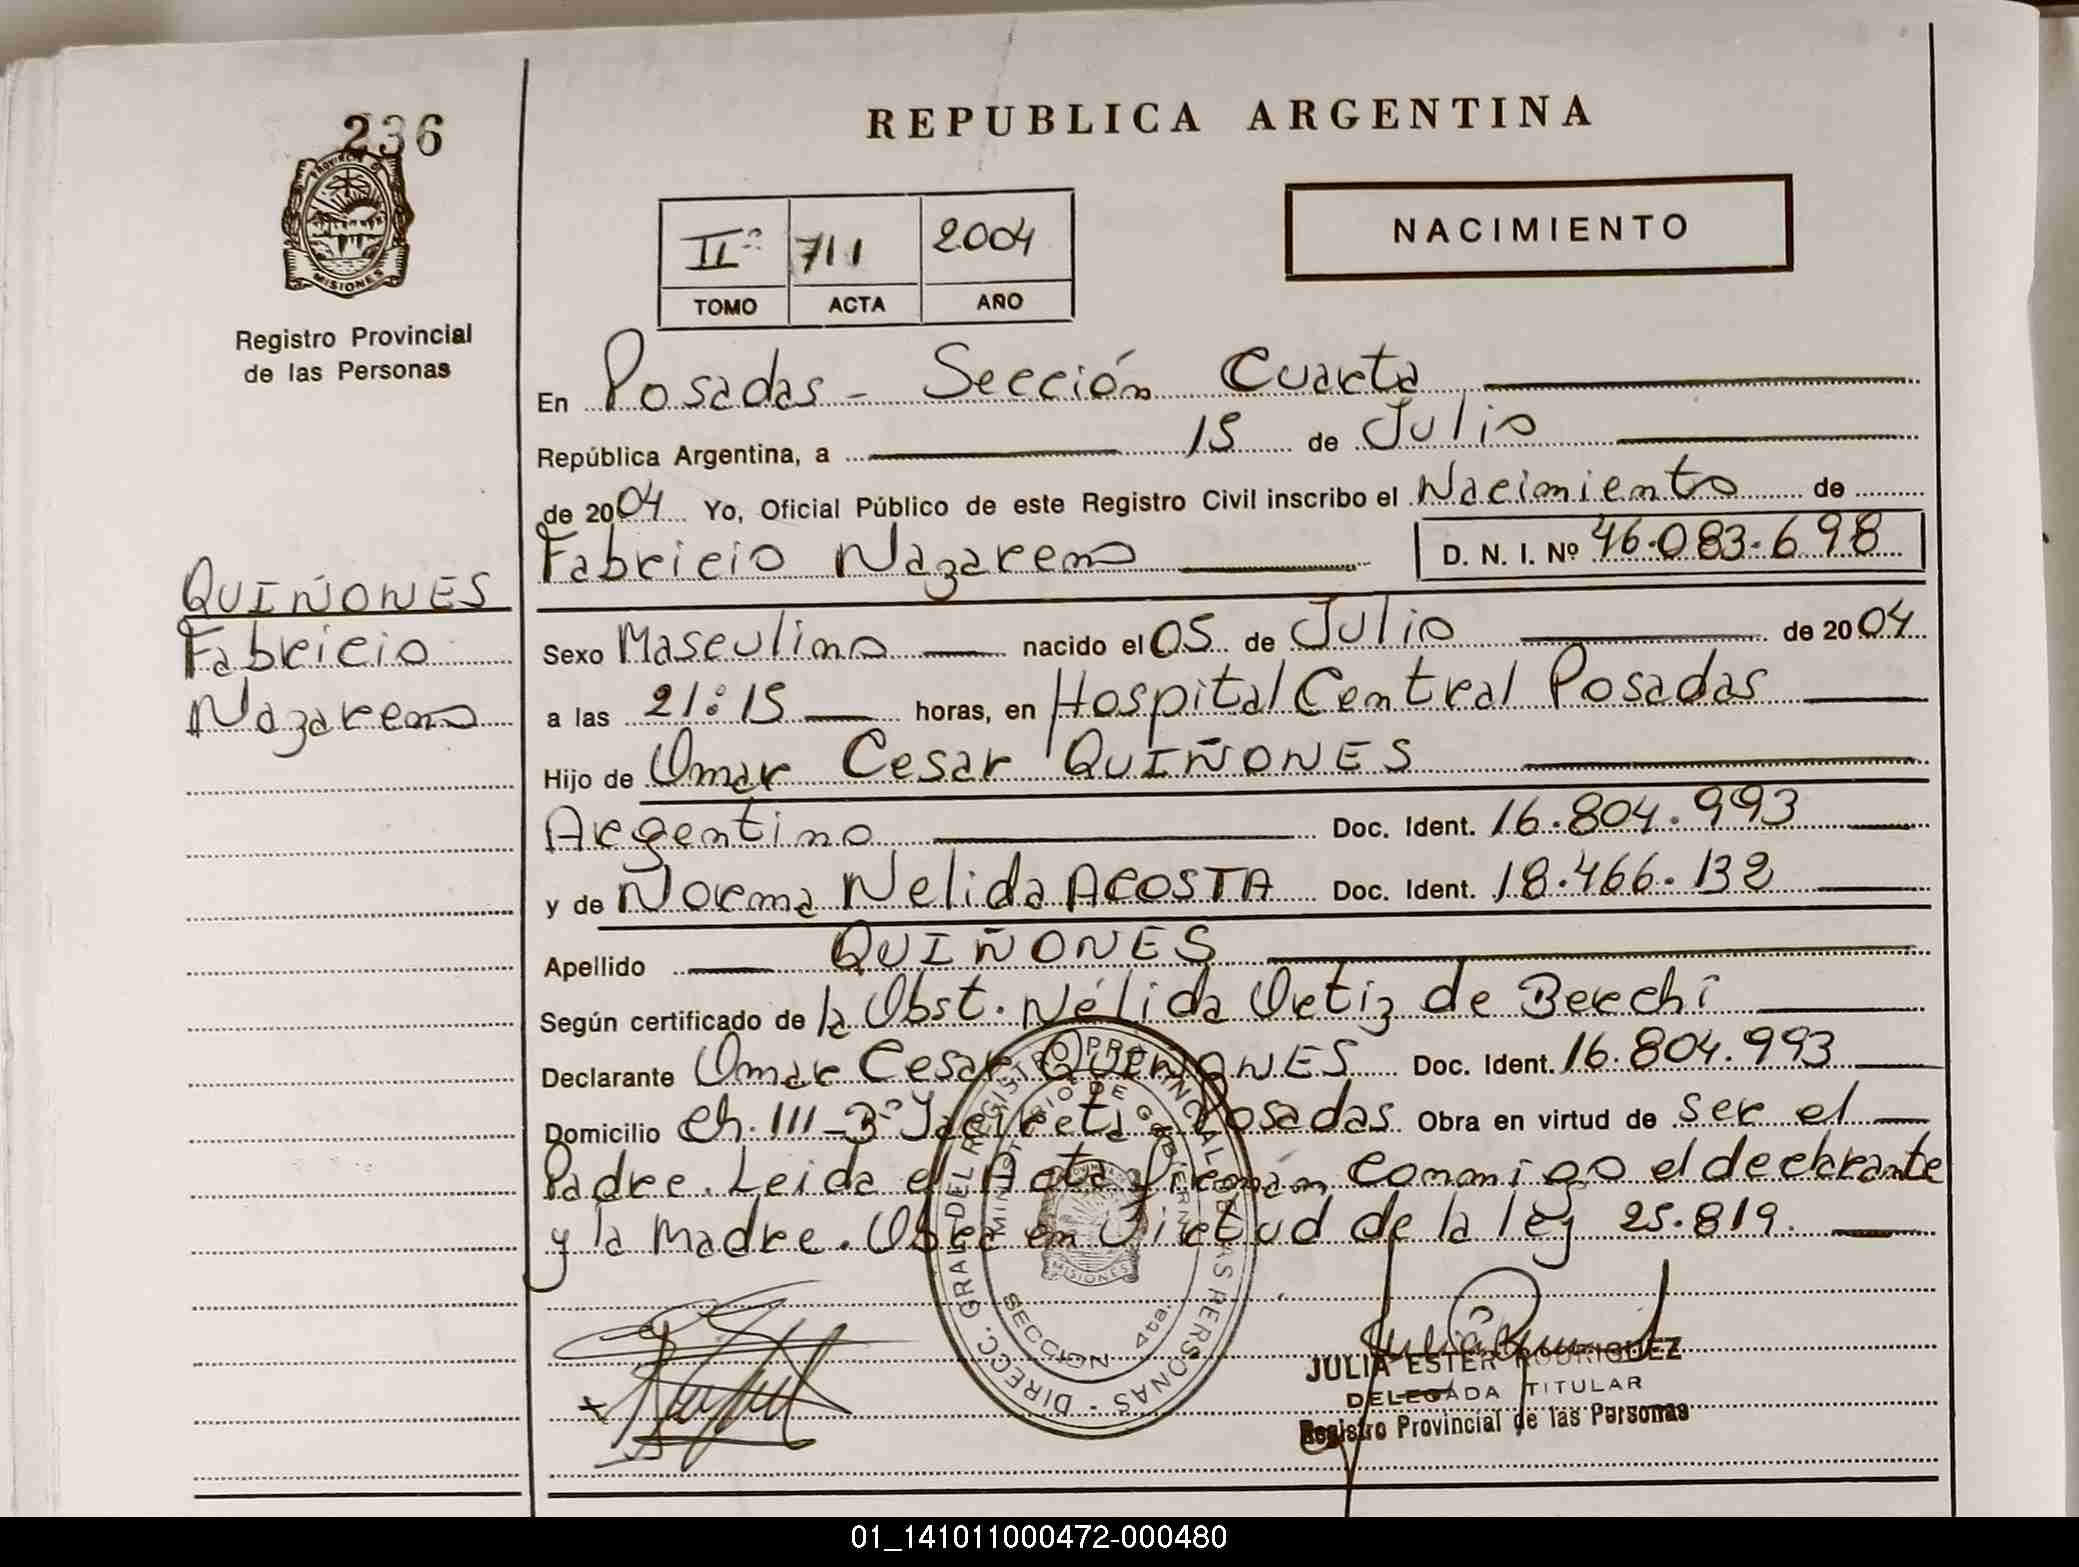 236
REPUBLICA ARGENTINA
PROVINCIA DE
MISIONES
Registro Provincial
de las Personas
IIº 711 2004
TOMO ACTA AÑO
NACIMIENTO
En Posadas - Sección Cuarta
República Argentina, a 15 de Julio
de 2004 Yo, Oficial Público de este Registro Civil inscribo el Nacimiento de
Fabricio Nazareno D. N. I. Nº 46.083.698
QUIÑONES
Fabricio
Nazareno
Sexo Masculino nacido el 05 de Julio de 2004
a las 21:15 horas, en Hospital Central Posadas
Hijo de Omar Cesar QUIÑONES
Argentino Doc. Ident. 16.804.993
y de Norma Nelida ACOSTA Doc. Ident. 18.466.132
Apellido QUIÑONES
Según certificado de la Obst. Nélida Ortiz de Berchi
Declarante Omar Cesar QUIÑONES Doc. Ident. 16.804.993
Domicilio Ch. III - Bº Yacireta Posadas Obra en virtud de ser el
Padre. Leida el Acta firman conmigo el declarante
y la Madre. Obra en Virtud de la ley 25.819.
DIRECC. GRAL. DEL REGISTRO PROVINCIAL DE LAS PERSONAS -
MINISTERIO DE GOBIERNO
MISIONES
SECCION 4ta.
JULIA ESTER RODRIGUEZ
DELEGADA TITULAR
Registro Provincial de las Personas
01_141011000472-000480